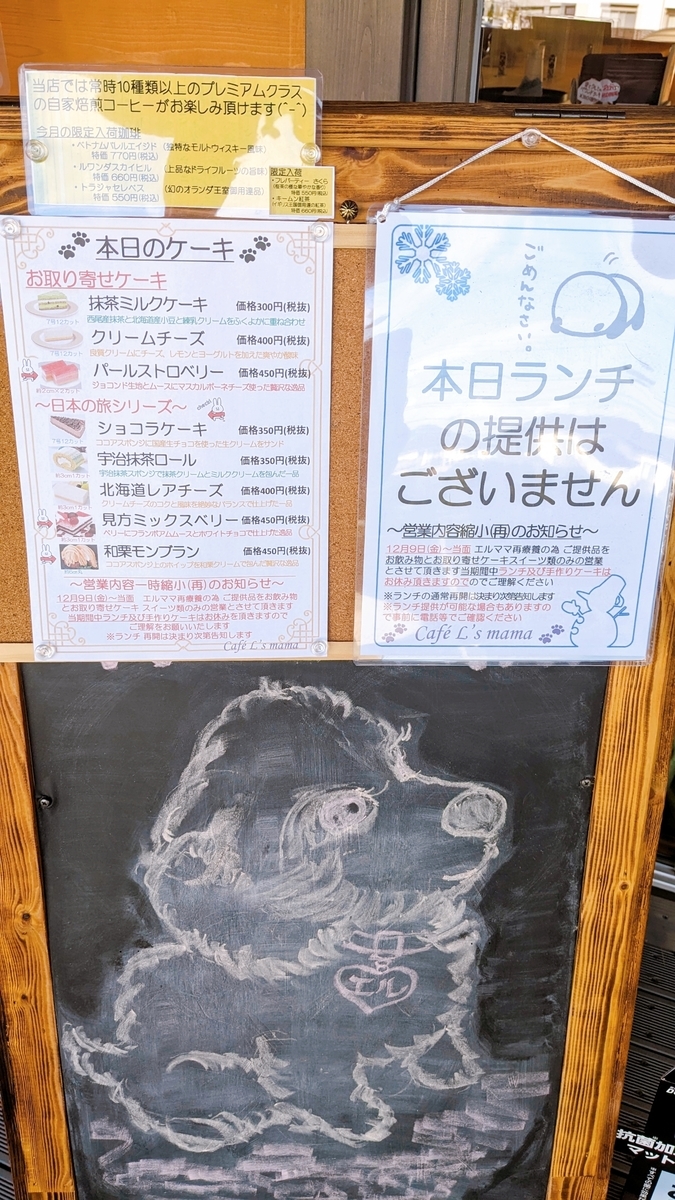 当店では常時10種類以上のプレミアムクラス
の自家焙煎コーヒーがお楽しみ頂けます(^-^)
今月の限定入荷珈琲
・ベトナムバレルエイジド (独特なモルトウィスキー風味)
特価 770円(税込)
・ルワンダスカイヒル (上品なドライフルーツの旨味)
特価 660円(税込)
・トラジャセレベス (幻のオランダ王室御用達品)
特価 550円(税込)
限定入荷
・フレバーティー さくら
特価 550円(税込)
・キームン紅茶
(イギリス王国御用達の紅茶)
特価 660円(税込)
本日のケーキ
お取り寄せケーキ
抹茶ミルクケーキ 価格300円(税抜)
7号12カット
西尾産抹茶と北海道産小豆と練乳クリームをふくよかに重ね合わせ
クリームチーズ 価格400円(税抜)
7号12カット
良質クリームにチーズ、レモンとヨーグルトを加えた爽やか酸味
パールストロベリー 価格450円(税抜)
ジョコンド生地とムースにマスカルポーネチーズ使った贅沢な逸品
〜日本の旅シリーズ〜
ショコラケーキ 価格350円(税抜)
7号12カット
ココアスポンジに国産生チョコを使った生クリームをサンド
宇治抹茶ロール 価格350円(税抜)
宇治抹茶スポンジで抹茶クリームとミルククリームを包んだ一品
北海道レアチーズ 価格400円(税抜)
クリームチーズのコクと風味を絶妙なバランスで仕上げた一品
見方ミックスベリー 価格450円(税抜)
ベリーにフランボアムムースとホワイトチョコで仕上げた逸品
和栗モンブラン 価格450円(税抜)
ココアスポンジ上のホイップを和栗クリームで包んだ贅沢な逸品
〜営業内容一時縮小(再)のお知らせ〜
12月9日(金)〜当面 エルママ再療養の為 ご提供品をお飲み物
とお取り寄せケーキ スイーツ類のみの営業とさせて頂きます
当期間中ランチ及び手作りケーキはお休みを頂きますので
ご理解をお願いいたします
※ランチ 再開は決まり次第告知します
Café L's mama
ごめんなさい。
本日ランチ
の提供は
ございません
〜営業内容縮小(再)のお知らせ〜
12月9日(金)〜当面 エルママ再療養の為 ご提供品を
お飲み物とお取り寄せケーキスイーツ類のみの営業
とさせて頂きます当期間中ランチ及び手作りケーキは
お休み頂きますのでのでご理解ください
※ランチの通常再開は決まり次第告知します
※ランチ提供が可能な場合もありますの
で事前に電話等でご確認ください
Café L's mama
エル
抗菌加
マット